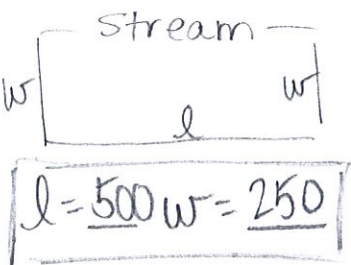 Stream
w w
l
l = 500 w = 250